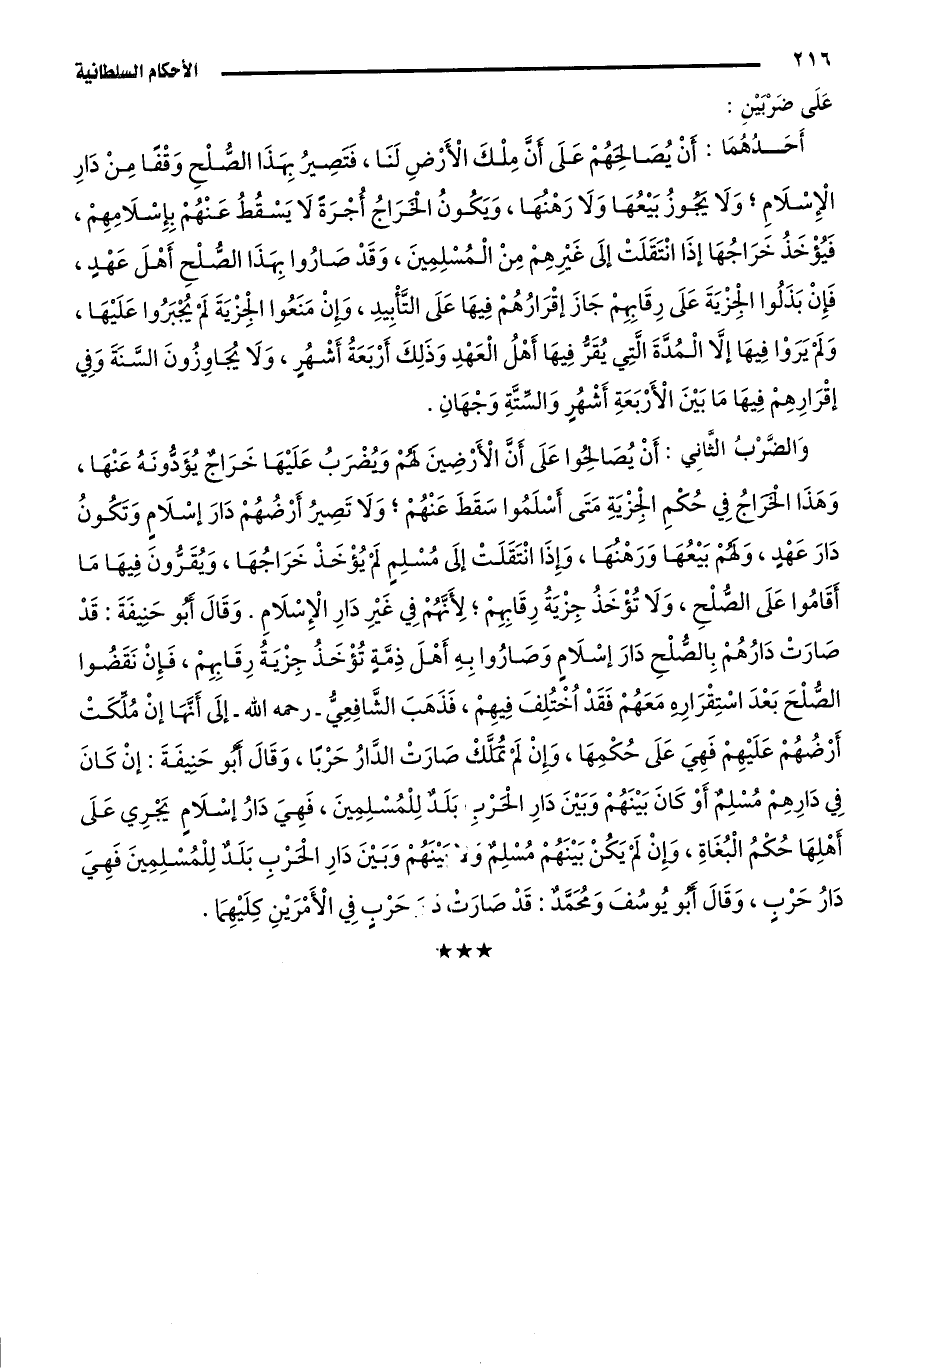 ٢١٦ الأحكام السلطانية
عَلَى ضَرْبَيْنِ :
أَحَدُهُمَا : أَنْ يُصَالِحَهُمْ عَلَى أَنَّ مِلْكَ الْأَرْضِ لَنَا ، فَتَصِيرُ بِهَذَا الصُّلْحِ وَقْفًا مِنْ دَارِ
الْإِسْلَامِ ؛ وَلَا يَجُوزُ بَيْعُهَا وَلَا رَهْنُهَا ، وَيَكُونُ الْخَرَاجُ أُجْرَةً لَا يَسْقُطُ عَنْهُمْ بِإِسْلَامِهِمْ ،
فَيُؤْخَذُ خَرَاجُهَا إِذَا انْتَقَلَتْ إِلَى غَيْرِهِمْ مِنْ الْمُسْلِمِينَ ، وَقَدْ صَارُوا بِهَذَا الصُّلْحِ أَهْلَ عَهْدٍ ،
فَإِنْ بَذَلُوا الْجِزْيَةَ عَلَى رِقَابِهِمْ جَازَ إِقْرَارُهُمْ فِيهَا عَلَى التَّأْبِيدِ ، وَإِنْ مَنَعُوا الْجِزْيَةَ لَمْ يُجْبَرُوا عَلَيْهَا ،
وَلَمْ يَرَوْا فِيهَا إِلَّا الْمُدَّةَ الَّتِي يُقَرُّ فِيهَا أَهْلُ الْعَهْدِ وَذَلِكَ أَرْبَعَةُ أَشْهُرٍ ، وَلَا يُجَاوِزُونَ السَّنَةَ وَفِي
إِقْرَارِهِمْ فِيهَا مَا بَيْنَ الْأَرْبَعَةِ أَشْهُرٍ وَالسِّتَّةِ وَجْهَانِ .
وَالضَّرْبُ الثَّانِي : أَنْ يُصَالِحُوا عَلَى أَنَّ الْأَرَضِينَ لَهُمْ وَيُضْرَبُ عَلَيْهَا خَرَاجٌ يُؤَدُّونَهُ عَنْهَا ،
وَهَذَا الْخَرَاجُ فِي حُكْمِ الْجِزْيَةِ مَتَى أَسْلَمُوا سَقَطَ عَنْهُمْ ؛ وَلَا تَصِيرُ أَرْضُهُمْ دَارَ إِسْلَامٍ وَتَكُونُ
دَارَ عَهْدٍ ، وَلَهُمْ بَيْعُهَا وَرَهْنُهَا ، وَإِذَا انْتَقَلَتْ إِلَى مُسْلِمٍ لَمْ يُؤْخَذْ خَرَاجُهَا ، وَيُقَرُّونَ فِيهَا مَا
أَقَامُوا عَلَى الصُّلْحِ ، وَلَا تُؤْخَذُ جِزْيَةُ رِقَابِهِمْ ؛ لِأَنَّهُمْ فِي غَيْرِ دَارِ الْإِسْلَامِ . وَقَالَ أَبُو حَنِيفَةَ : قَدْ
صَارَتْ دَارُهُمْ بِالصُّلْحِ دَارَ إِسْلَامٍ وَصَارُوا بِهِ أَهْلَ ذِمَّةٍ تُؤْخَذُ جِزْيَةُ رِقَابِهِمْ ، فَإِنْ نَقَضُوا
الصُّلْحَ بَعْدَ اسْتِقْرَارِهِ مَعَهُمْ فَقَدْ اُخْتُلِفَ فِيهِمْ ، فَذَهَبَ الشَّافِعِيُّ ـ رحمه الله ـ إِلَى أَنَّهَا إِنْ مُلِّكَتْ
أَرْضُهُمْ عَلَيْهِمْ فَهِيَ عَلَى حُكْمِهَا ، وَإِنْ لَمْ تُمَلَّكْ صَارَتْ الدَّارُ حَرْبًا ، وَقَالَ أَبُو حَنِيفَةَ : إِنْ كَانَ
فِي دَارِهِمْ مُسْلِمٌ أَوْ كَانَ بَيْنَهُمْ وَبَيْنَ دَارِ الْحَرْبِ بَلَدٌ لِلْمُسْلِمِينَ ، فَهِيَ دَارُ إِسْلَامٍ يَجْرِي عَلَى
أَهْلِهَا حُكْمُ الْبُغَاةِ ، وَإِنْ لَمْ يَكُنْ بَيْنَهُمْ مُسْلِمٌ وَلَا بَيْنَهُمْ وَبَيْنَ دَارِ الْحَرْبِ بَلَدٌ لِلْمُسْلِمِينَ فَهِيَ
دَارُ حَرْبٍ ، وَقَالَ أَبُو يُوسُفَ وَمُحَمَّدٌ : قَدْ صَارَتْ حَرْبٍ فِي الْأَمْرَيْنِ كِلَيْهِمَا .
★★★